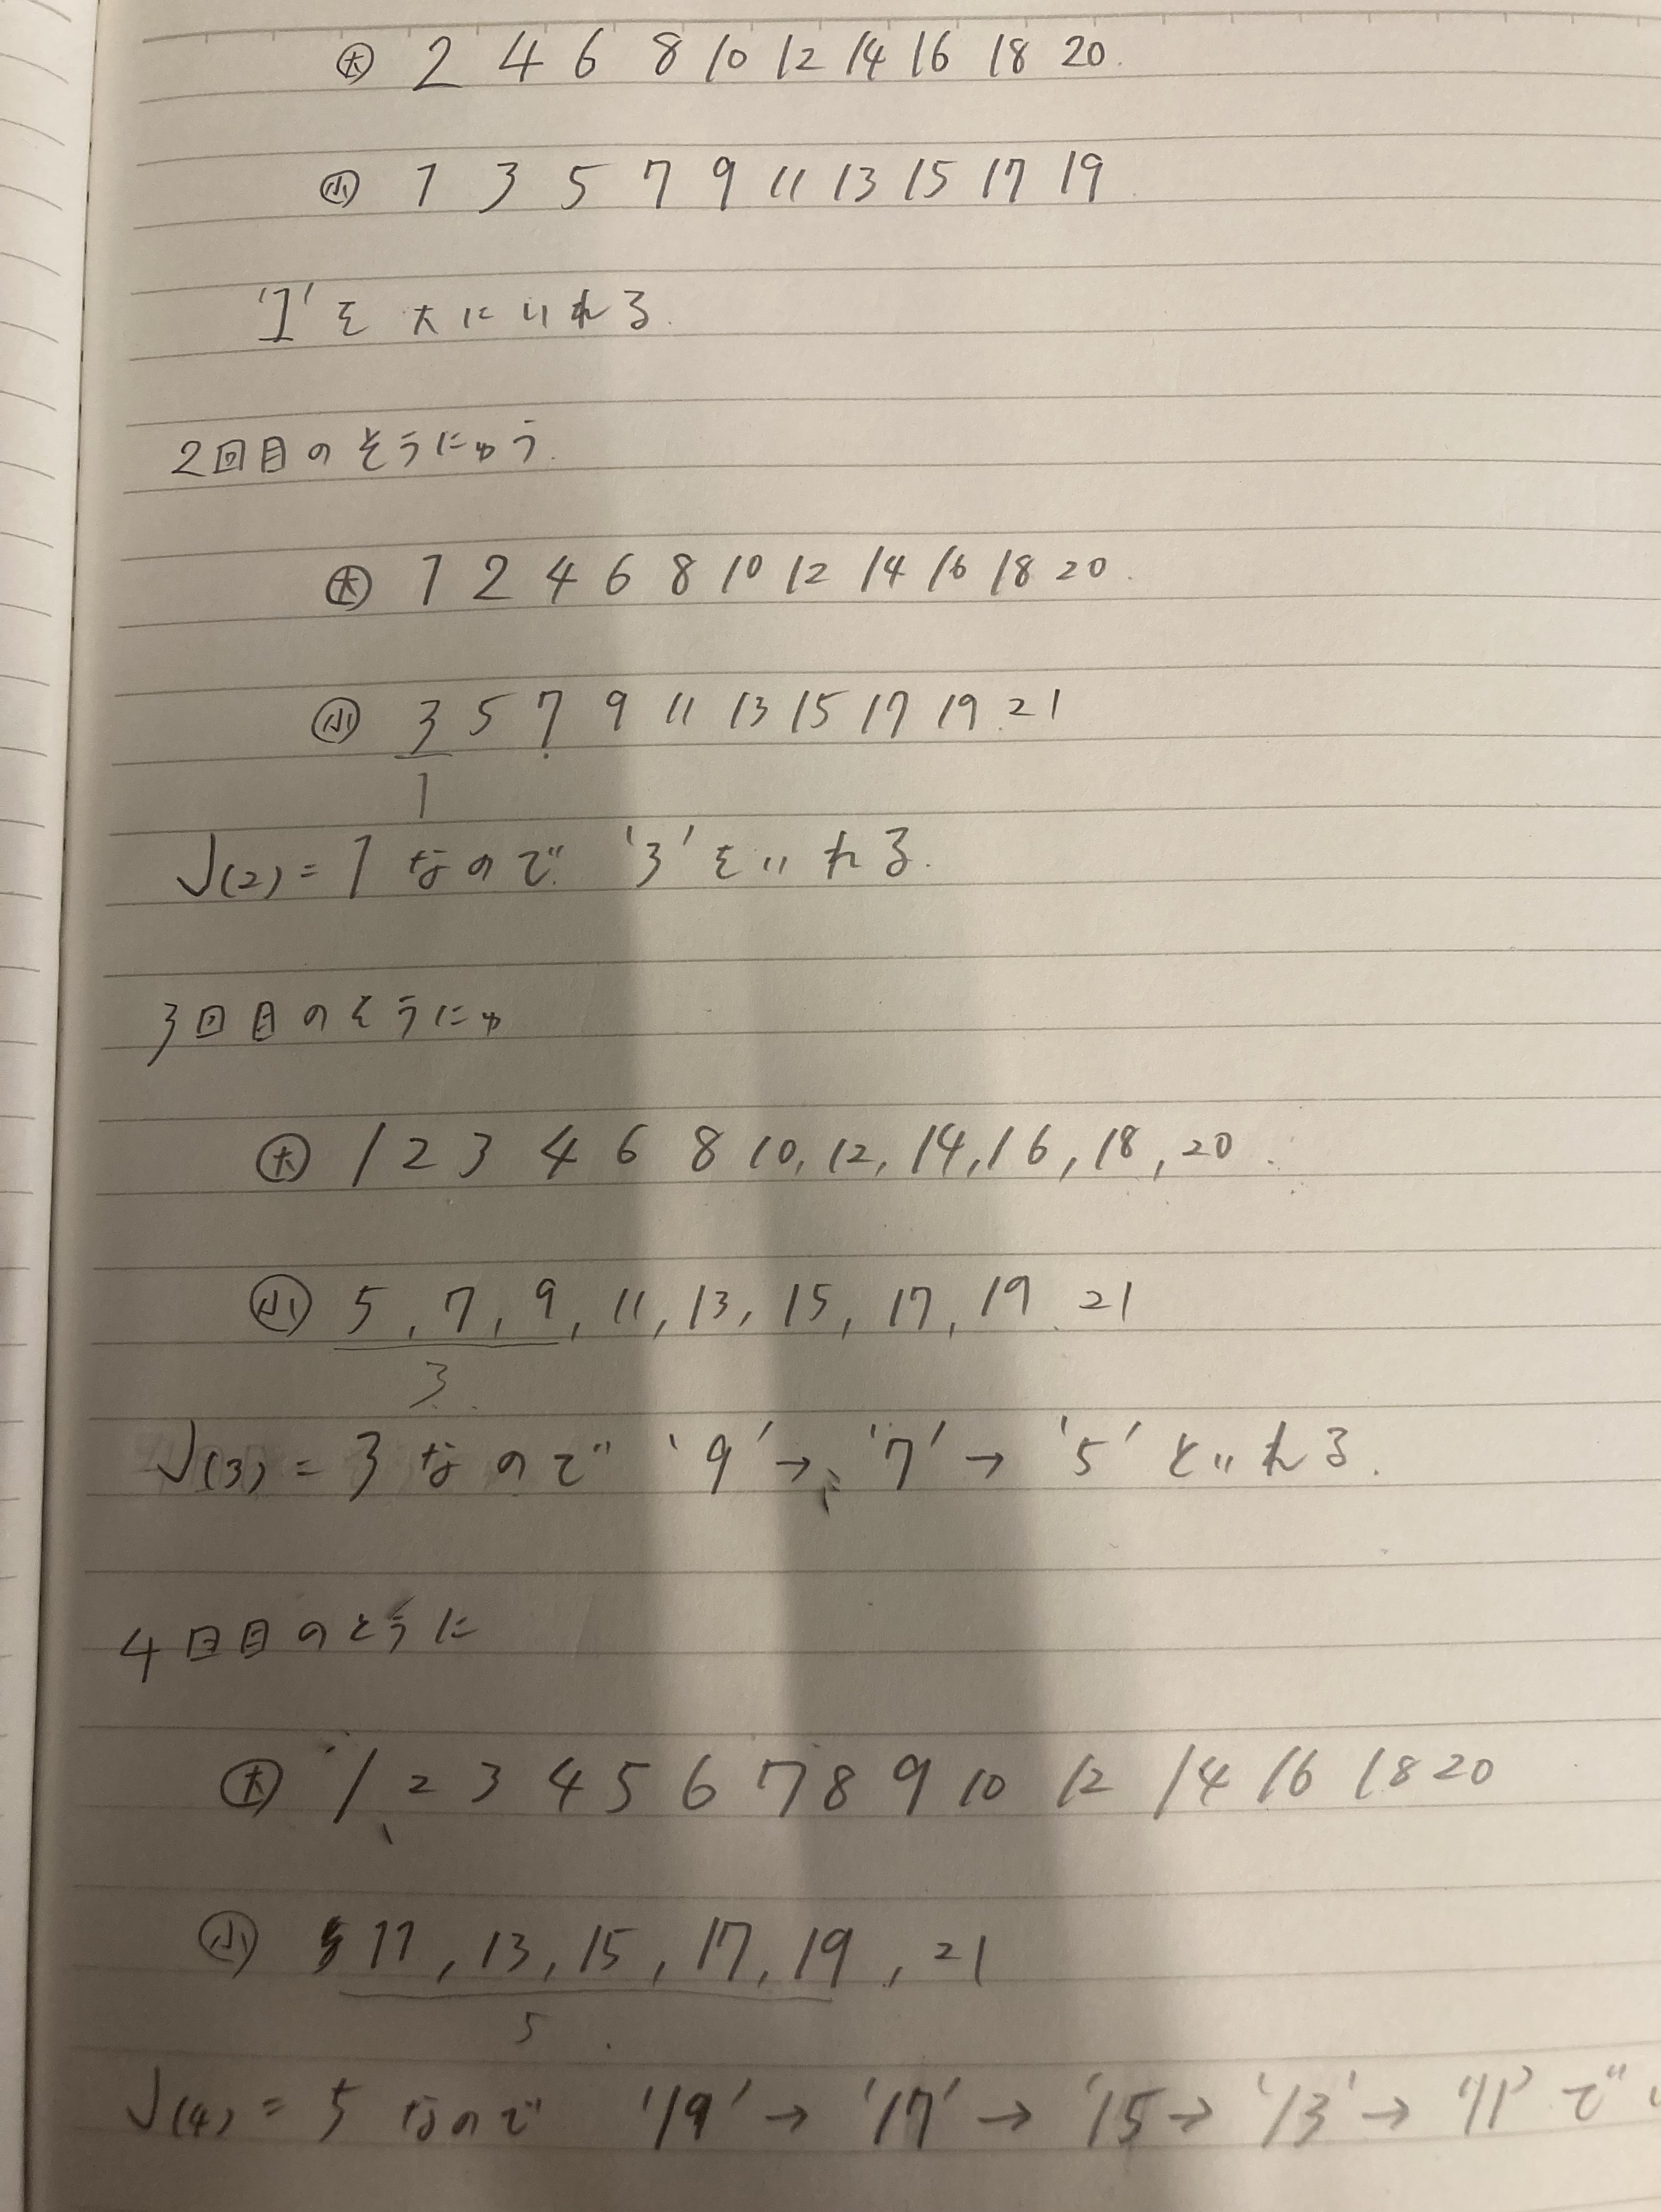 大 2 4 6 8 10 12 14 16 18 20.
小 1 3 5 7 9 11 13 15 17 19
'1'を大にいれる.
2回目のそうにゅう.
大 1 2 4 6 8 10 12 14 16 18 20.
小 3 5 7 9 11 13 15 17 19 21
1
J(2)=1なので '3'をいれる.
3回目のそうにゅ
大 1 2 3 4 6 8 10, 12, 14, 16, 18, 20.
小 5, 7, 9, 11, 13, 15, 17, 19 21
3
J(3)=3なので '9'→'7'→'5'といれる.
4回目のそうに
大 1 2 3 4 5 6 7 8 9 10 12 14 16 18 20
小 11, 13, 15, 17, 19, 21
5
J(4)=5なので '19'→'17'→'15→'13'→'11'で